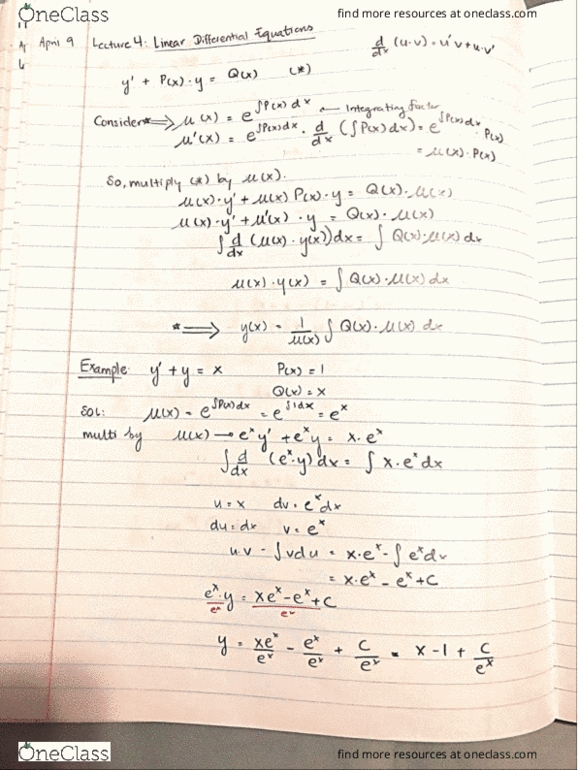 OneClass
find more resources at oneclass.com
April 9 Lecture 4: Linear Differential Equations
d/dx (u·v) = u'v + u·v'
y' + P(x)·y = Q(x) (*)
Consider* ⟹ μ(x) = e^∫P(x)dx ← Integrating factor
μ'(x) = e^∫P(x)dx · d/dx (∫P(x)dx) = e^∫P(x)dx · P(x)
= μ(x)·P(x)
So, multiply (*) by μ(x).
μ(x)·y' + μ(x) P(x)·y = Q(x)·μ(x)
μ(x)·y' + μ'(x)·y = Q(x)·μ(x)
∫ d/dx (μ(x)·y(x))dx = ∫ Q(x)·μ(x) dx
μ(x)·y(x) = ∫ Q(x)·μ(x) dx
* ⟹ y(x) = 1/μ(x) ∫ Q(x)·μ(x) dx
Example: y' + y = x P(x) = 1
Q(x) = x
Sol: μ(x) = e^∫P(x)dx = e^∫1dx = e^x
multi by μ(x) → e^x y' + e^x y = x·e^x
∫ d/dx (e^x·y)dx = ∫ x·e^x dx
u = x dv = e^x dx
du = dx v = e^x
u·v - ∫vdu = x·e^x - ∫e^x dx
= x·e^x - e^x + C
e^x·y/e^x = xe^x - e^x + C/e^x
y = xe^x/e^x - e^x/e^x + C/e^x = x - 1 + C/e^x
OneClass
find more resources at oneclass.com